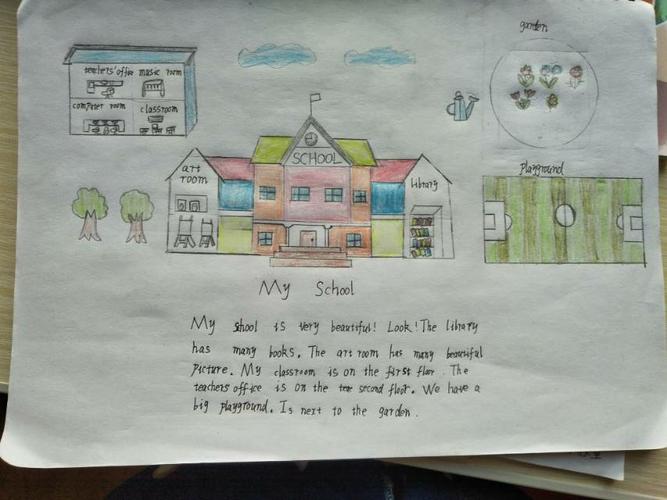 garden
teachers' office music room
computer room classroom
SCHOOL
art
room
library
Playground
My School
My shool is very beautiful! Look! The library
has many books. The art room has many beautiful
picture. My classroom is on the first floor. The
teachers office is on the second floor. We have a
big playground. Is next to the garden.